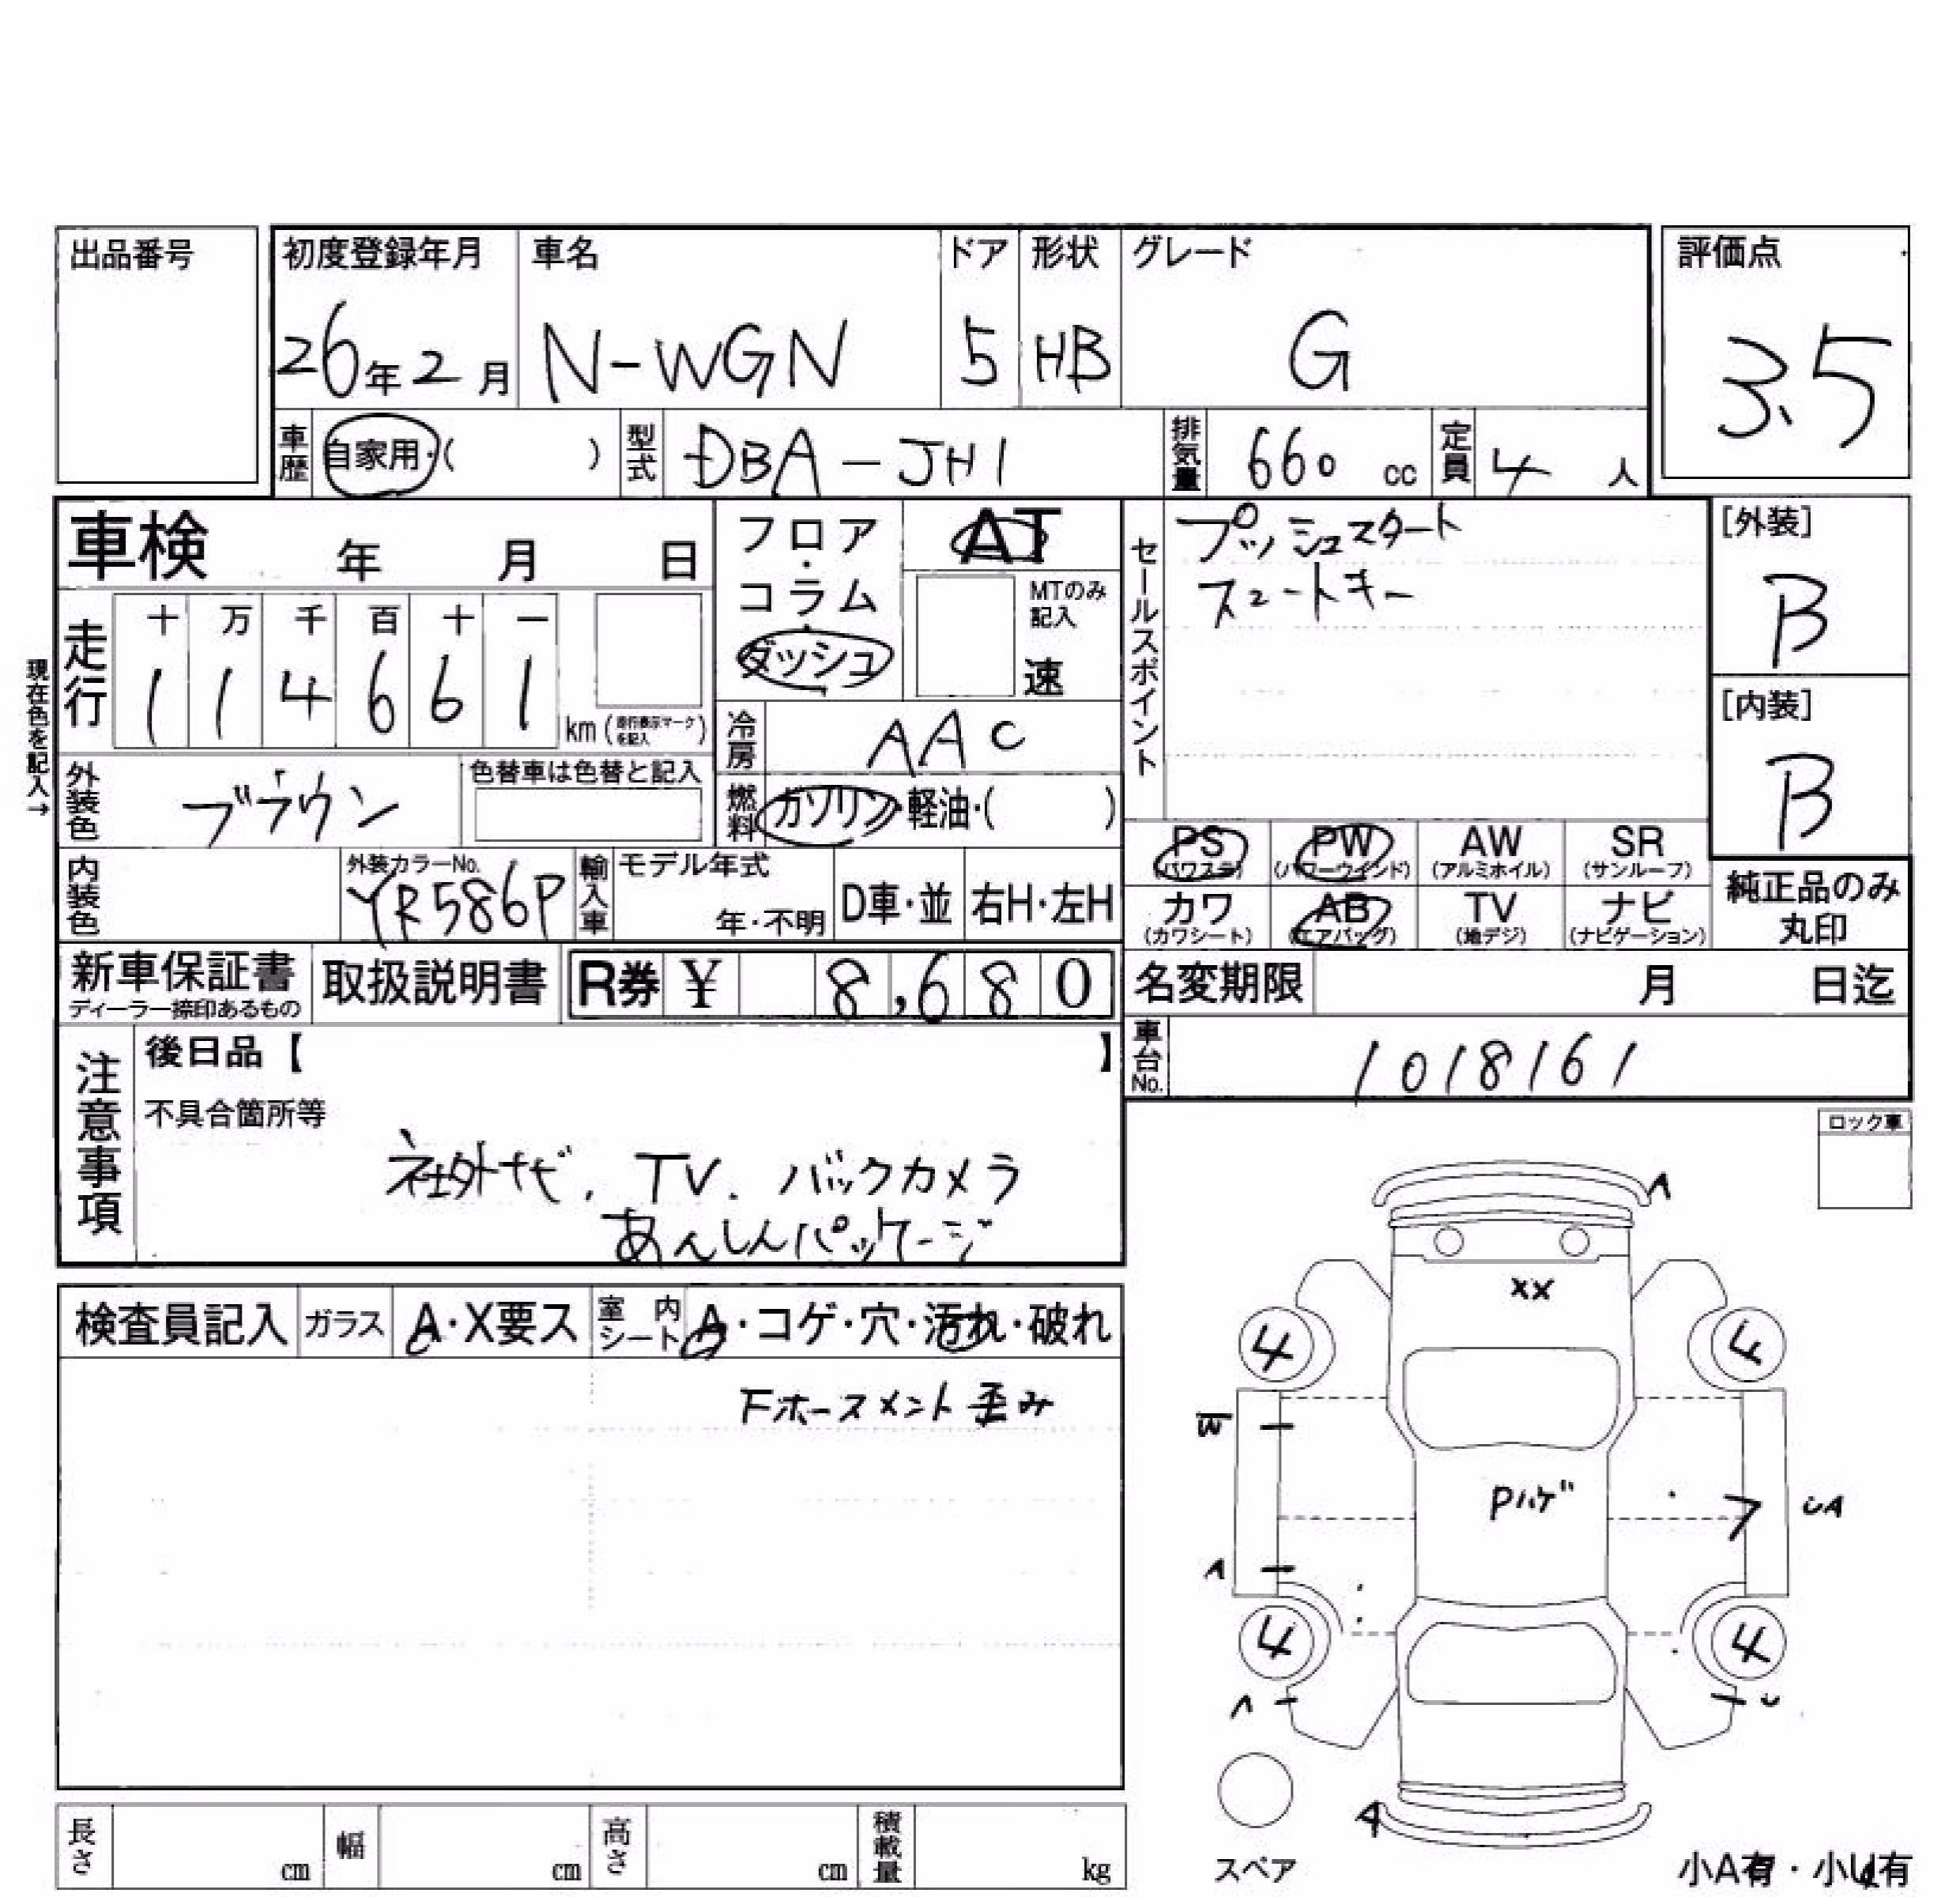 出品番号
初度登録年月 車名 ドア 形状 グレード 評価点
26年2月 N-WGN 5 HB G 3.5
車歴 自家用・( ) 型式 DBA-JH1 排気量 660 cc 定員 4 人
車検 年 月 日
フロア・コラム・ダッシュ AT
MTのみ記入
速
セールスポイント
プッシュスタート
スマートキー
[外装]
B
[内装]
B
現在色を記入→
走行 十 万 千 百 十 一
1 1 4 6 6 1 km (走行表示マークを記入)
冷房 AAC
外装色 ブラウン 色替車は色替と記入
燃料 ガソリン・軽油・( )
PS (パワステ) PW (パワーウインド) AW (アルミホイル) SR (サンルーフ)
カワ (カワシート) AB (エアバッグ) TV (地デジ) ナビ (ナビゲーション)
純正品のみ丸印
内装色 外装カラーNo. YR586P 輸入車 モデル年式 年・不明 D車・並 右H・左H
新車保証書 ディーラー捺印あるもの 取扱説明書 R券 ¥ 8,680
名変期限 月 日迄
車台No. 1018161
注意事項 後日品【 】
不具合箇所等
社外ナビ, TV. バックカメラ
あんしんパッケージ
ロック車
検査員記入 ガラス A・X要ス 室内シート A・コゲ・穴・汚れ・破れ
Fホースメント歪み
A
XX
4 4
W
Pハゲ UA
A
4 4
A U
A
スペア
小A有・小U有
長さ cm 幅 cm 高さ cm 積載量 kg